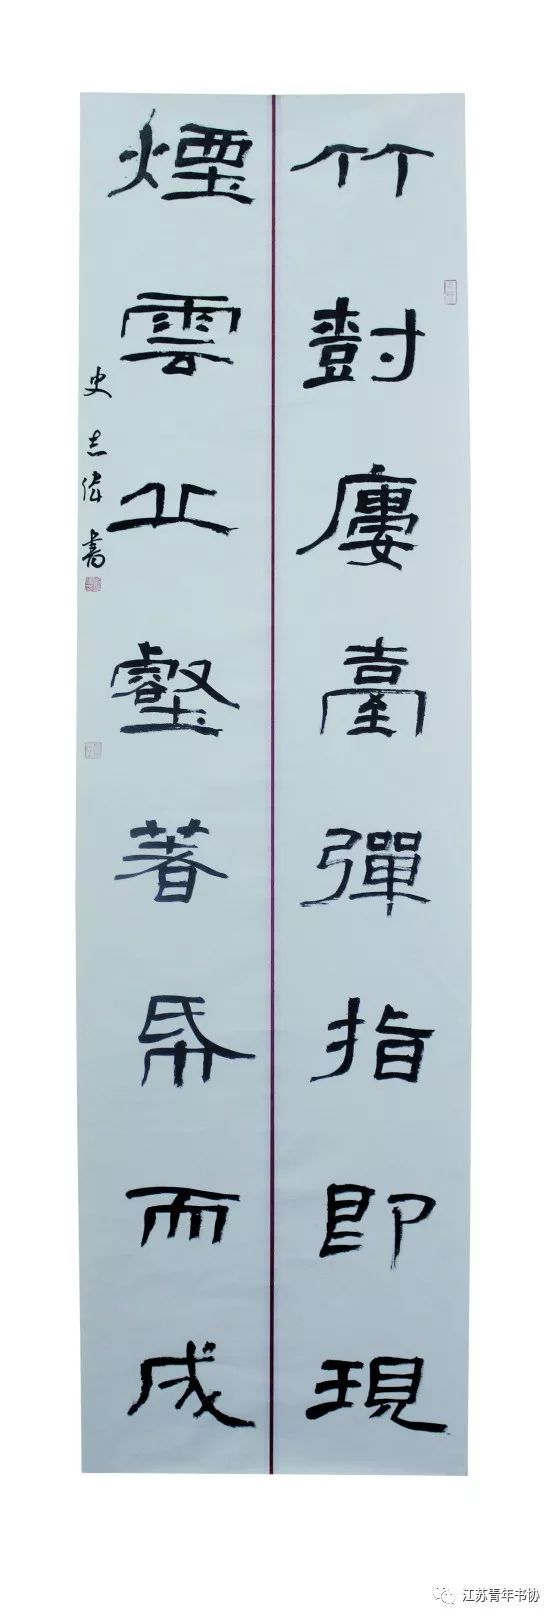 竹尌廔臺彈指即現
煙雲丘壑著帋而成
史志偉書
江苏青年书协